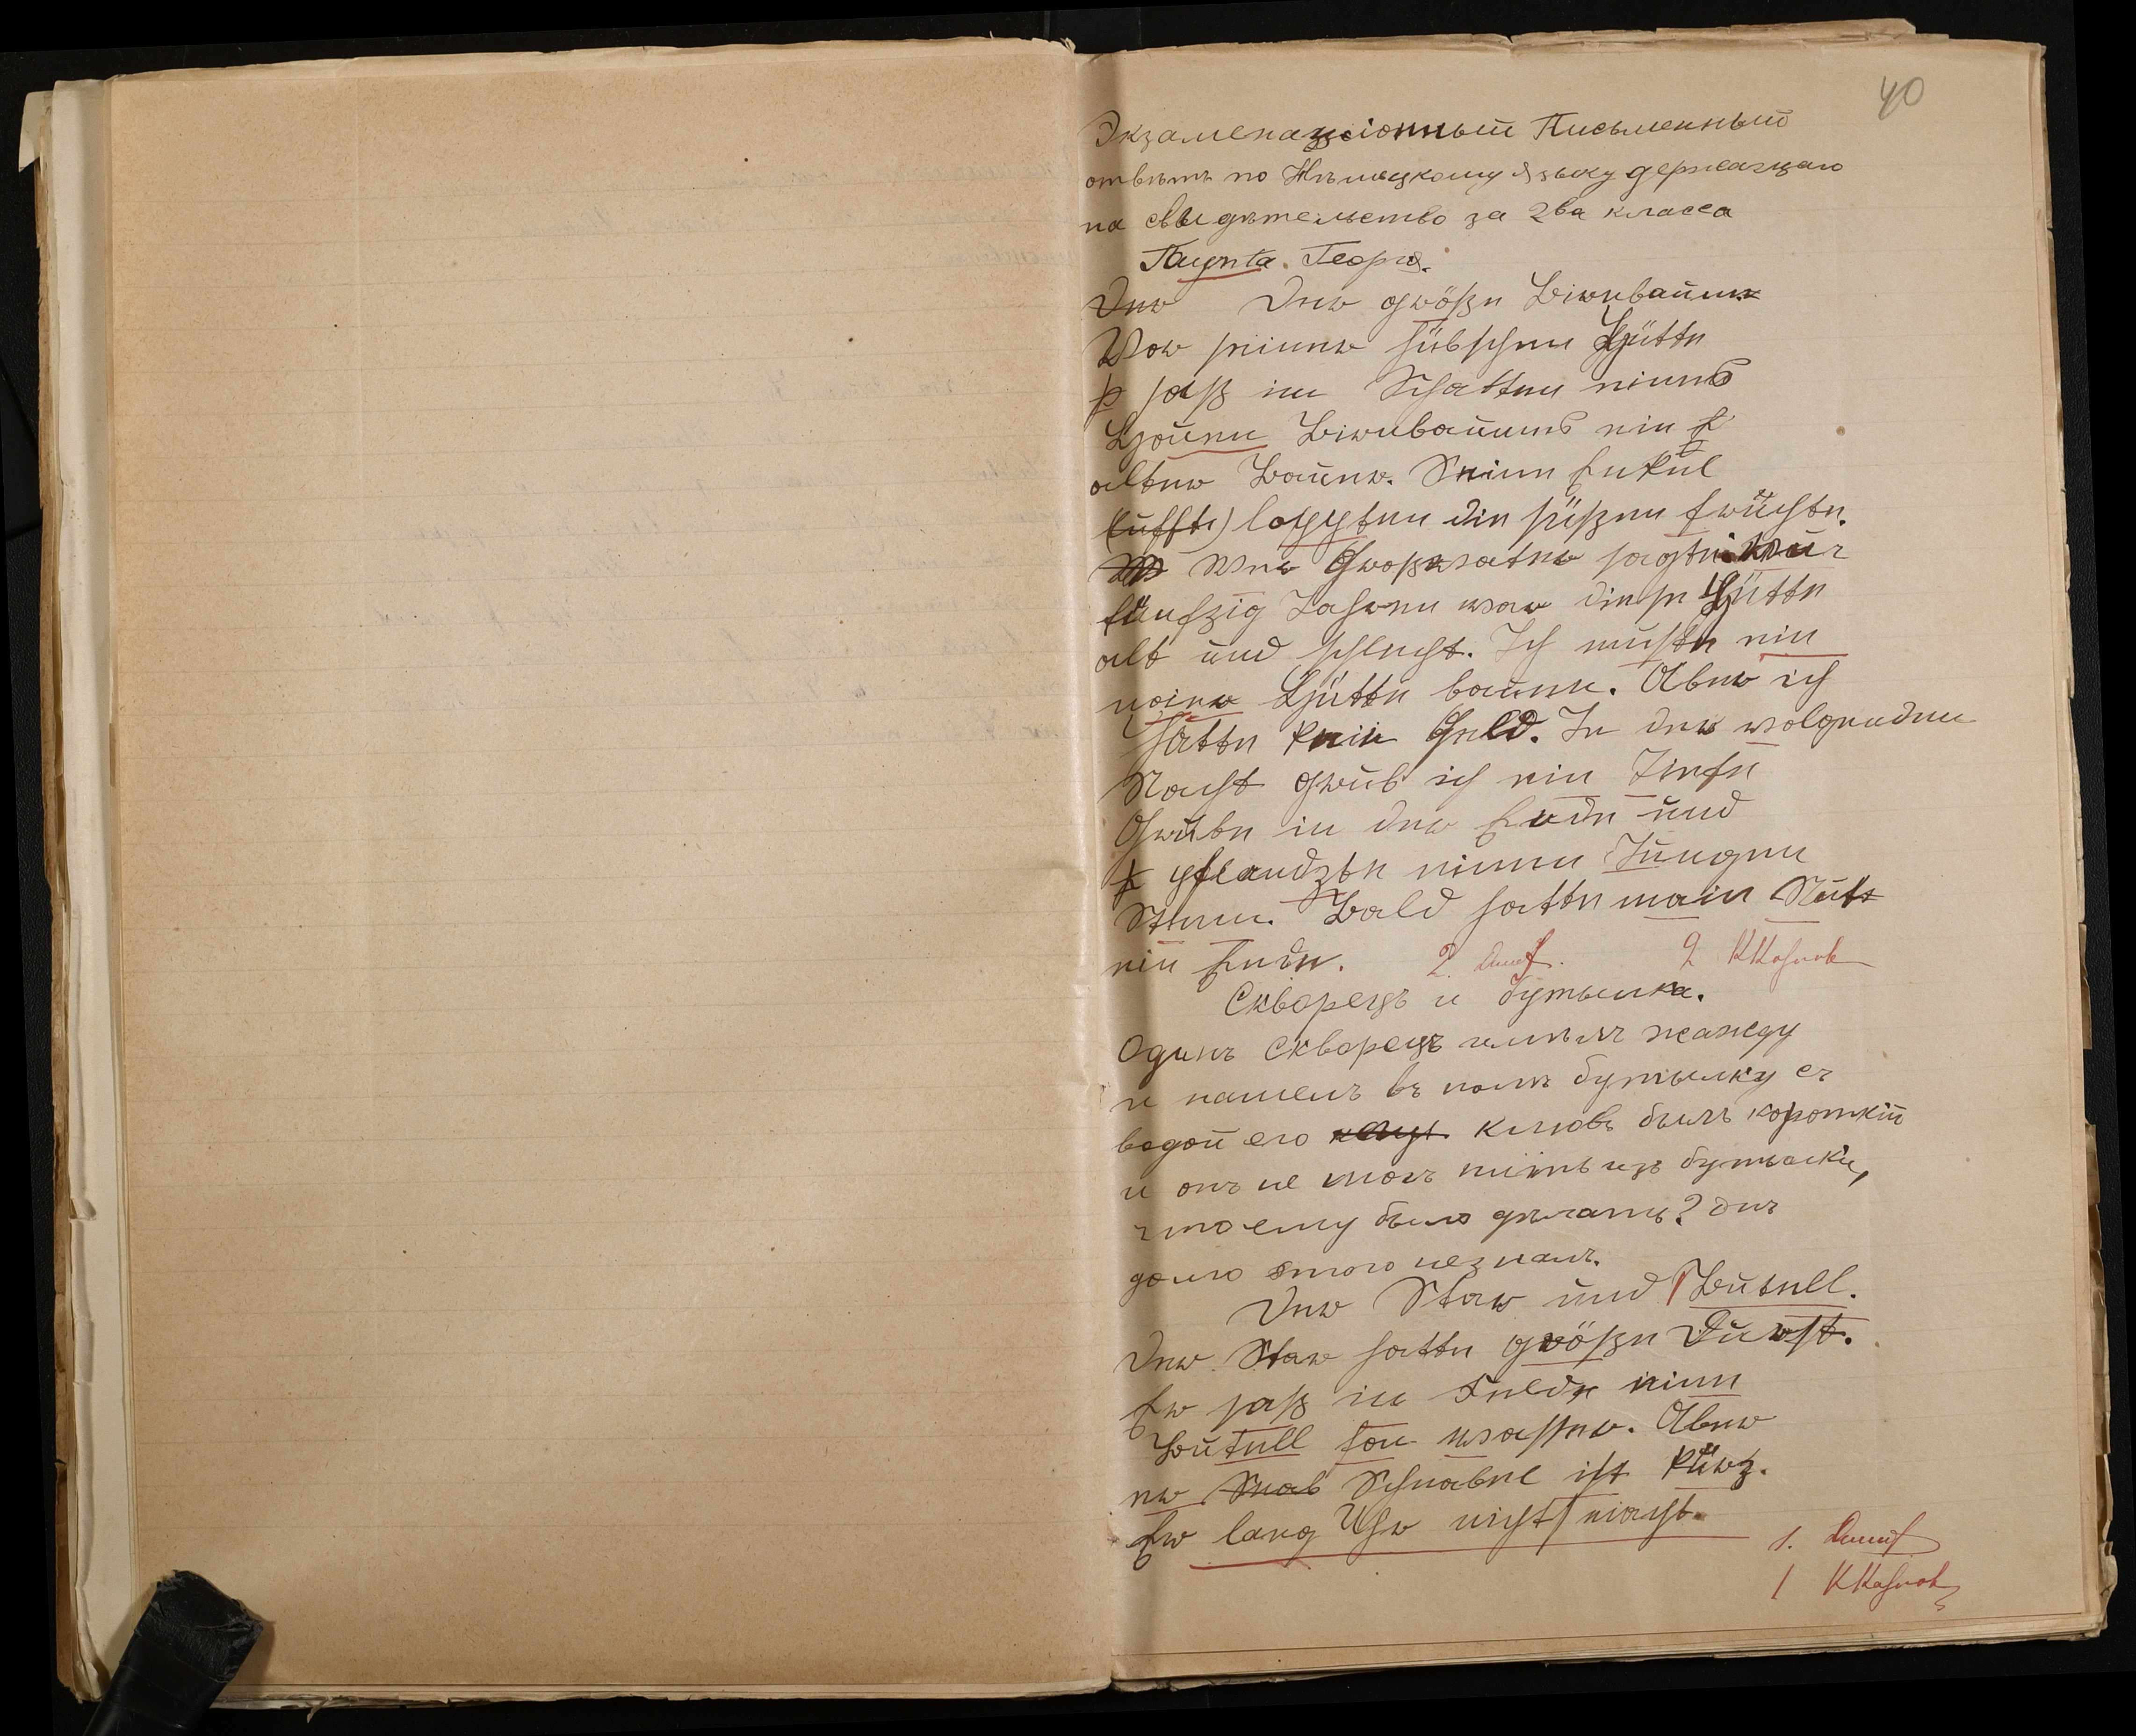 40
Экзаменаціонный Письменный
отвѣтъ по Нѣмецкому Языку держащаго
на свидѣтельство за 2ва класса
Георгія.
Der Der größe Birnbaum
Vor seiner hübschen Hütte
saß im Schatten eines
Birnbaumes ein
alter Bauer. Seine Enkel
die süßen Früchte.
Der Großvater sagte: vor
fünfzig Jahren war diese Hütte
alt und schlecht. Ich muste ein
Hütte bauen. Aber ich
hatte kein Geld. In der volgenden
Nacht grub ich ein Tiefe
Grube in der Erde und
pflandzte einen Jungen
Stam. Bald hatte main
ein Ende. 2. 2
Скворецъ и бутылка.
Одинъ скворецъ имѣлъ жажду
и нашелъ въ полѣ бутылку съ
водой его клювъ былъ короткій
и онъ не могъ пить изъ бутылки,
что ему было дѣлать? Онъ
долго этого не зналъ.
Der Star und Butell.
Der Star hatte größe Durst.
Er saß in Felde eine
Butell fon wasser. Aber
er Schnabel ist kurz.
Er lang Uhr nicht
1.
1